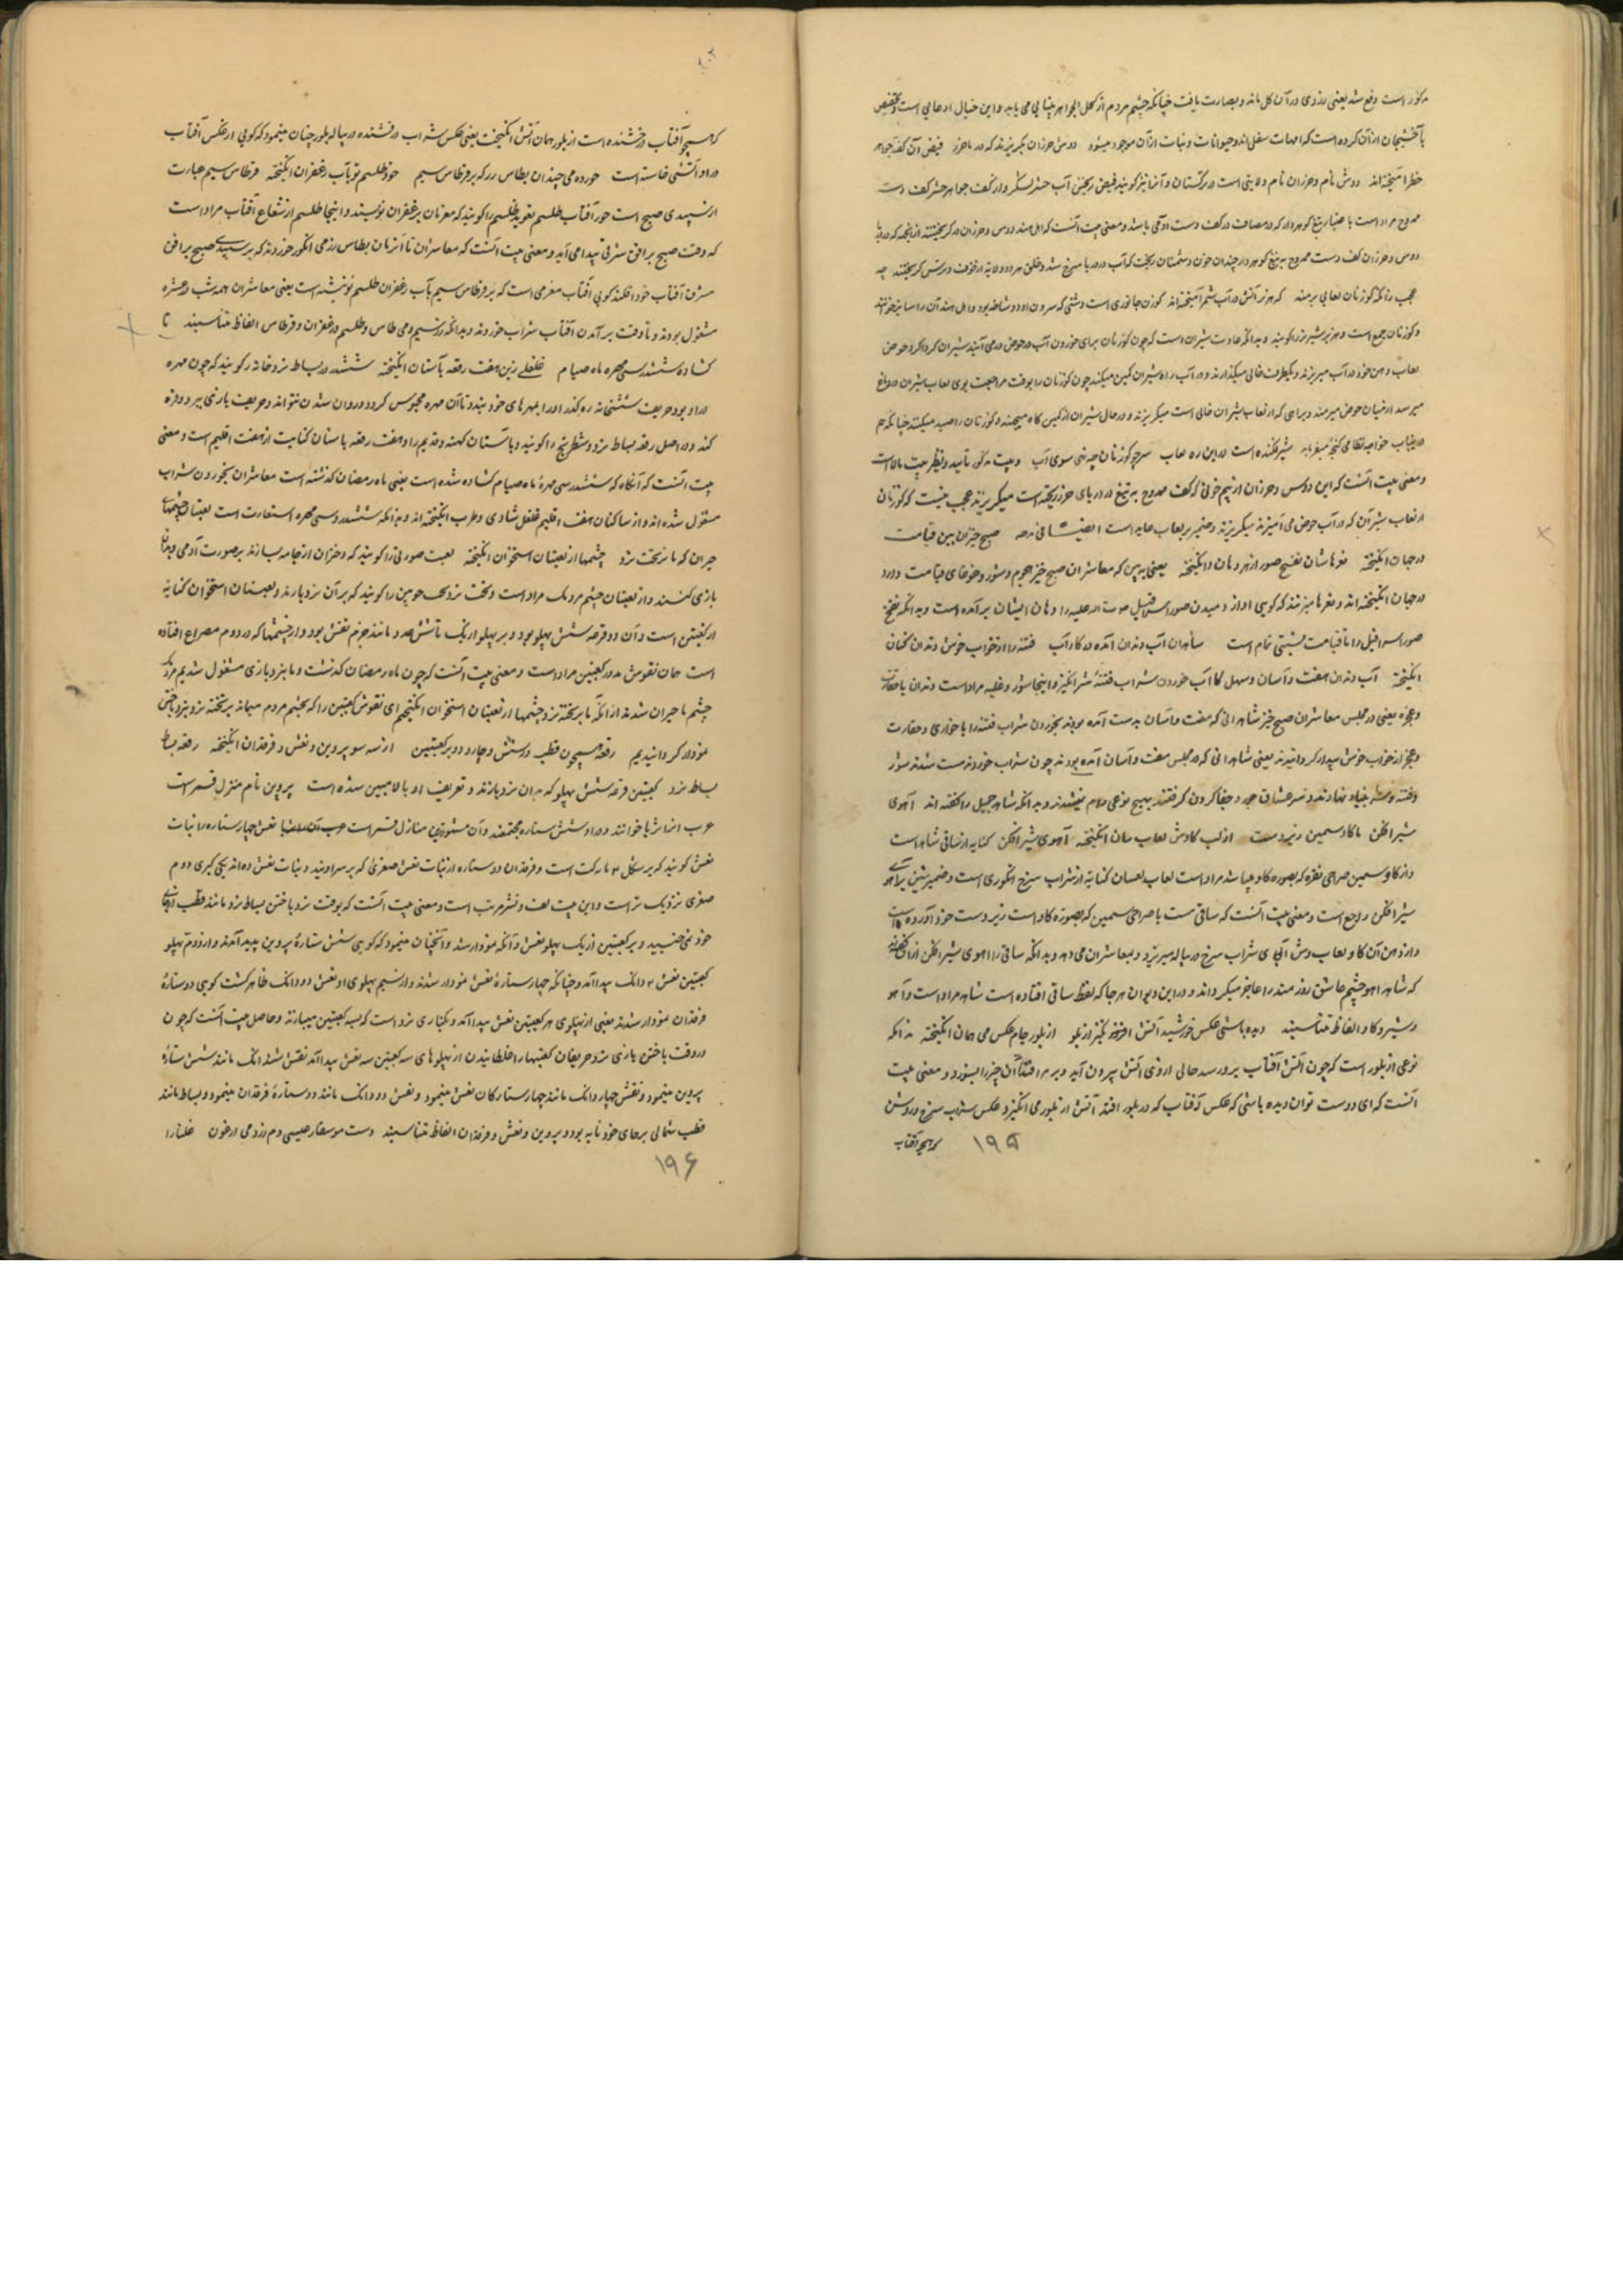 مذکور است دفع شد یعنی زردی در آن کل ماند و بصارت یافت چنانکه چشم مردم از کحل الجواهر بینایی می یابد و این خیال ادعایی است و تخصیص
خطر آمیخته اند روس نام و خزران نام ولایتی است در ترکستان و آنرا نیز گویند فیض ریختن آب
ممدوح مراد است با عتبار تیغ گوهردار که در مصاف در کف دست او می باشد و معنی بیت آنست که اهل
روس و خزران کف دست ممدوح به تیغ گوهردار چندان خون دشمنان ریخت که آب در دریا سرخ شد و خلق هر دو ولایت از خوف
عجب زانکه گوزنان لعابی برمند که هژبر آتش در آب شمر آمیخته اند گوزن جانوری است دشتی که سرون او دو شاخه بود و اهل هند آن را
و گوزنان جمع است و هزبر شیر نر را گویند و بدانکه عادت شیران است که چون گوزنان برای خوردن آب در حوض درمی آیند شیران گرداگرد حوض
لعاب دهن خود در آب میریزند و یکطرف خالی میگذارند و در آب راه شیران کمین میکنند چون گوزنان را بوقت مراجعت بوی لعاب شیران در دماغ
میرسد از میان حوض میرمند و براهی که از لعاب شیران خالی است میگریزند و در حال شیران از کمین گاه میجهند و گوزنان را صید میکنند چنانکه هم
درینباب خواجه نظامی گنجه میفرماید شیر فکنده است درین ره لعاب سر چو گوزنان چه نهی سوی آب و بیت مذکور تأیید و نظیر بیت بالا است
و معنی بیت آنست که این روس و خزران از بیم خونی که کف ممدوح به تیغ در دریای خزر ریخته است میگریزند عجب نیست که گوزنان
از لعاب شیران که در آب حوض می آمیزند میگریزند و ضمیر بر لعاب عاید است ایضاً فی مدحه صبح خیزان بین قیامت
در جهان انگیخته نعره هاشان نفخ صور از هر دهان انگیخته یعنی به بین که معاشران صبح خیز هجوم و شور و غوغای قیامت دارد
در جهان انگیخته اند و نعره ها میزنند که گویی آواز دمیدن صور اسرافیل صوت الله علیه را از دهان ایشان برآمده است و بدانکه نفخ
صور اسرافیل را با قیامت نسبتی تمام است شاهدان آب دندان آمده در کار آب فتنه را از خواب خوش دندان کنان
انگیخته آب دندان مفت و آسان و سهل کار آب خوردن شراب فتنه شرانگیز و اینجا شور و غلبه مراد است دندان با حقارت
و عجز یعنی در مجلس معاشران صبح خیز شاهدانی که مفت و آسان بدست آمده بودند بخوردن شراب فتنه را با خواری و حقارت
و عجز از خواب خوش بیدار گردانیدند یعنی شاهدانی که در مجلس مفت و آسان آمده بودند چون شراب خوردند مست شدند شور
و فتنه و شر بنیاد نهادند و بر عشاق جور و جفا کردن گرفتند بهیچ نوعی رام نمیشدند و بدانکه شاهد جمیل را گفته اند آهوی
شیرافکن ما گاو سیمین زیردست از لب گاوش لعاب لعلسان انگیخته آهوی شیرافکن کنایه از ساقی شاهد است
و از گاو سیمین صراحی نقره که بصورت گاو میباشد مراد است لعاب لعلسان کنایه از شراب سرخ انگوری است و ضمیر شین بر آهو
شیرافکن راجع است و معنی بیت آنست که ساقی مست با صراحی سیمین که بصورت گاو است زیر دست خود آورده است
و از دهن آن گاو لعاب وش آن شراب سرخ در پیاله میریزد و بمعاشران می دهد و بدانکه ساقی را آهوی شیرافکن از آن گفته
که شاهد آهو چشم عاشق زورمند را عاجز میگرداند و در این دیوان هر جا که لفظ ساقی افتاده است شاهد مراد است و آهو
و شیر و گاو الفاظ متناسبند دیده باشی عکس خورشید آتش افروز از بلور از بلور جام عکس می همان انگیخته بدانکه
نوعی از بلور است که چون آتش آفتاب برو رسد حالی از وی آتش بیرون آید و بر هر چه افتد آن چیز را بسوزد و معنی بیت
آنست که ای دوست توان دیده باشی که عکس آفتاب که در بلور افتد آتش از بلور می انگیزد عکس شراب سرخ در روشن
که همچو آفتاب
۱۹۵
که همچو آفتاب درخشنده است از بلور همان آتش انگیخت یعنی عکس شراب درخشنده در پیاله بلور چنان مینمود که گویی از عکس آفتاب
در او آتشی خاسته است خورده می چندان بطاس زر که بر قرطاس سیم خور طلسم نو بآب زعفران انگیخته قرطاس سیم عبارت
از سپیدی صبح است خور آفتاب طلسم تعویذ طلسم را گویند که معزمان بزعفران نویسند و اینجا طلسم از شعاع آفتاب مراد است
که وقت صبح بر افق شرقی پیدا می آید و معنی بیت آنست که معاشران تا آنزمان بطاس زر می انگور خوردند که بر سپیدی صبح بر افق
مشرق آفتاب خود افکند گویی آفتاب معزمی است که بر قرطاس سیم بآب زعفران طلسم نو نبشته است یعنی معاشران همه شب در عشرت
مشغول بودند و تا وقت برآمدن آفتاب شراب خوردند و بدانکه زر و سیم و می طاس و طلسم و زعفران و قرطاس الفاظ متناسبند تا
گشاده ششدر سی مهره ماه صیام غلغلی زین هفت رقعه باستان انگیخته ششدر در بساط نرد خانه را گویند که چون مهره
کند و در اصل رقعه بساط نرد و شطرنج را گویند و باستان کهنه و قدیم را و هفت رقعه باستان کنایت از هفت اقلیم است و معنی
بیت آنست که آنگاه که ششدر سی مهره ماه صیام گشاده شده است یعنی ماه رمضان گذشته است معاشران بخوردن شراب
مشغول شده اند و از ساکنان هفت اقلیم غلغل شادی و طرب انگیخته اند و بدانکه ششدر و سی مهره استعارت است لعبتان چشمهای
حیران که ما بر تخت نرد چشمها از لعبتان استخوان انگیخته لعبت صورتی را گویند که دختران از جامه بسازند بر صورت آدمی و بدان
بازی کنند و از لعبتان چشم مردمک مراد است و تخت نرد تخت چوبین را گویند که بر آن نرد بازند و لعبتان استخوان کنایه
از کعبتین است و آن دو قرعه شش پهلو بود و بر پهلو از یک تا شش عدد مانند چشم نقش بود و از چشمها که در دوم مصراع افتاده
است همان نقوش مدور کعبتین مراد است و معنی بیت آنست که چون ماه رمضان گذشت و ما بنرد بازی مشغول شدیم مردمک
چشم ما حیران شدند از آنکه ما بر تخته نرد چشمها از لعبتان استخوان انگیختیم ای نقوش کعبتین را که بچشم مردم میماند بر تخته نرد بنرد باختن
نمودار گردانیدیم رقعه همچون قطب و ز شش و چار و دو بر کعبتین از سه سو پروین و نعش و فرقدان انگیخته رقعه بساط
بساط نرد کعبتین قرعه شش پهلو که بدان نرد بازند و تعریف او بالا مبین شده است پروین نام منزل قمر است
عرب آنرا ثریا خوانند و در او شش ستاره مجتمعند و آن مشهورترین منازل قمر است نعش چهار ستاره را بنات
نعش گویند که بر شکل مرکب است و فرقدان دو ستاره از بنات نعش صغری که بر سر اویند و بنات نعش دو اند یکی کبری دوم
صغری نزدیک تر است و این بیت لف و نشر مرتب است و معنی بیت آنست که بوقت نرد باختن بساط نرد مانند قطب از جای
خود نمی جنبید و بر کعبتین از یک پهلو نقش دانگه نمودار شد و آنچنان مینمود که گویی شش ستاره پروین پدید آمدند و از دوم پهلو
کعبتین نقش دانگ پیدا آمد و چنانکه چهار ستاره نعش نمودار شدند و از سیم پهلوی او نقش دو دانگ ظاهر گشت گویی دو ستاره
فرقدان نمودار شدند یعنی از پهلوی هر کعبتین نقش پیدا آمد و یکباری نرد است که بسه کعبتین میبازند و حاصل بیت آنست که چون
در وقت باختن بازی نرد حریفان کعبتها را غلطانیدن از پهلوهای سه کعبتین سه نقش پیدا آمد نقش شش دانگ مانند شش ستاره
پروین مینمود و نقش چهار دانگ مانند چهار ستارگان نعش مینمود و نقش دو دانگ مانند دو ستاره فرقدان مینمود و بساط مانند
قطب شمالی بر جای خود ثابت بود و پروین و نعش و فرقدان الفاظ متناسبند دست موسیقار عیسی دم ز رومی ارغنون غلنارا
۱۹۶